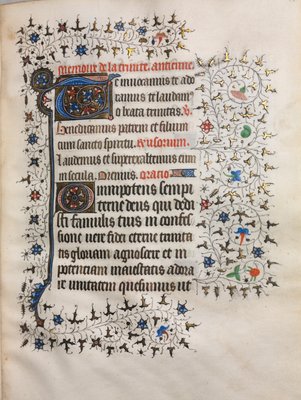 Memoire de la trinite.
Te invocamus te ado
ramus te laudam
o beata trinitas. V.
Benedicamus patrem et filium
cum sancto spiritu.
Laudemus et superexaltemus eum
in secula. Oremus. oracio
Omnipotens sempi
terne deus qui dedi
sti famulis tuis in confes
sione vere fidei eterne trinita
tis gloriam agnoscere et in
potenciam maiestatis adora
re unitatem quesumus ut